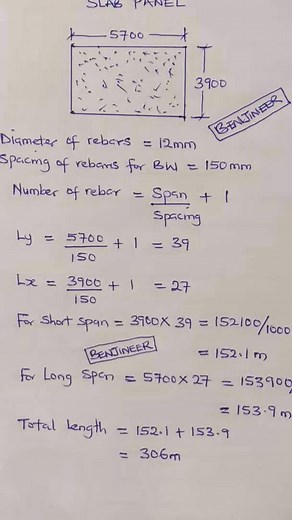 SLAB PANEL
5700
3900
BENJINEER
Diameter of rebars = 12mm
Spacing of rebars for BW = 150mm
Number of rebar = Span/Spacing + 1
Ly = 5700/150 + 1 = 39
Lx = 3900/150 + 1 = 27
For Short span = 3900 X 39 = 152100/1000
= 152.1 m
BENJINEER
For Long Span = 5700 X 27 = 153900
= 153.9 m
Total length = 152.1 + 153.9
= 306m